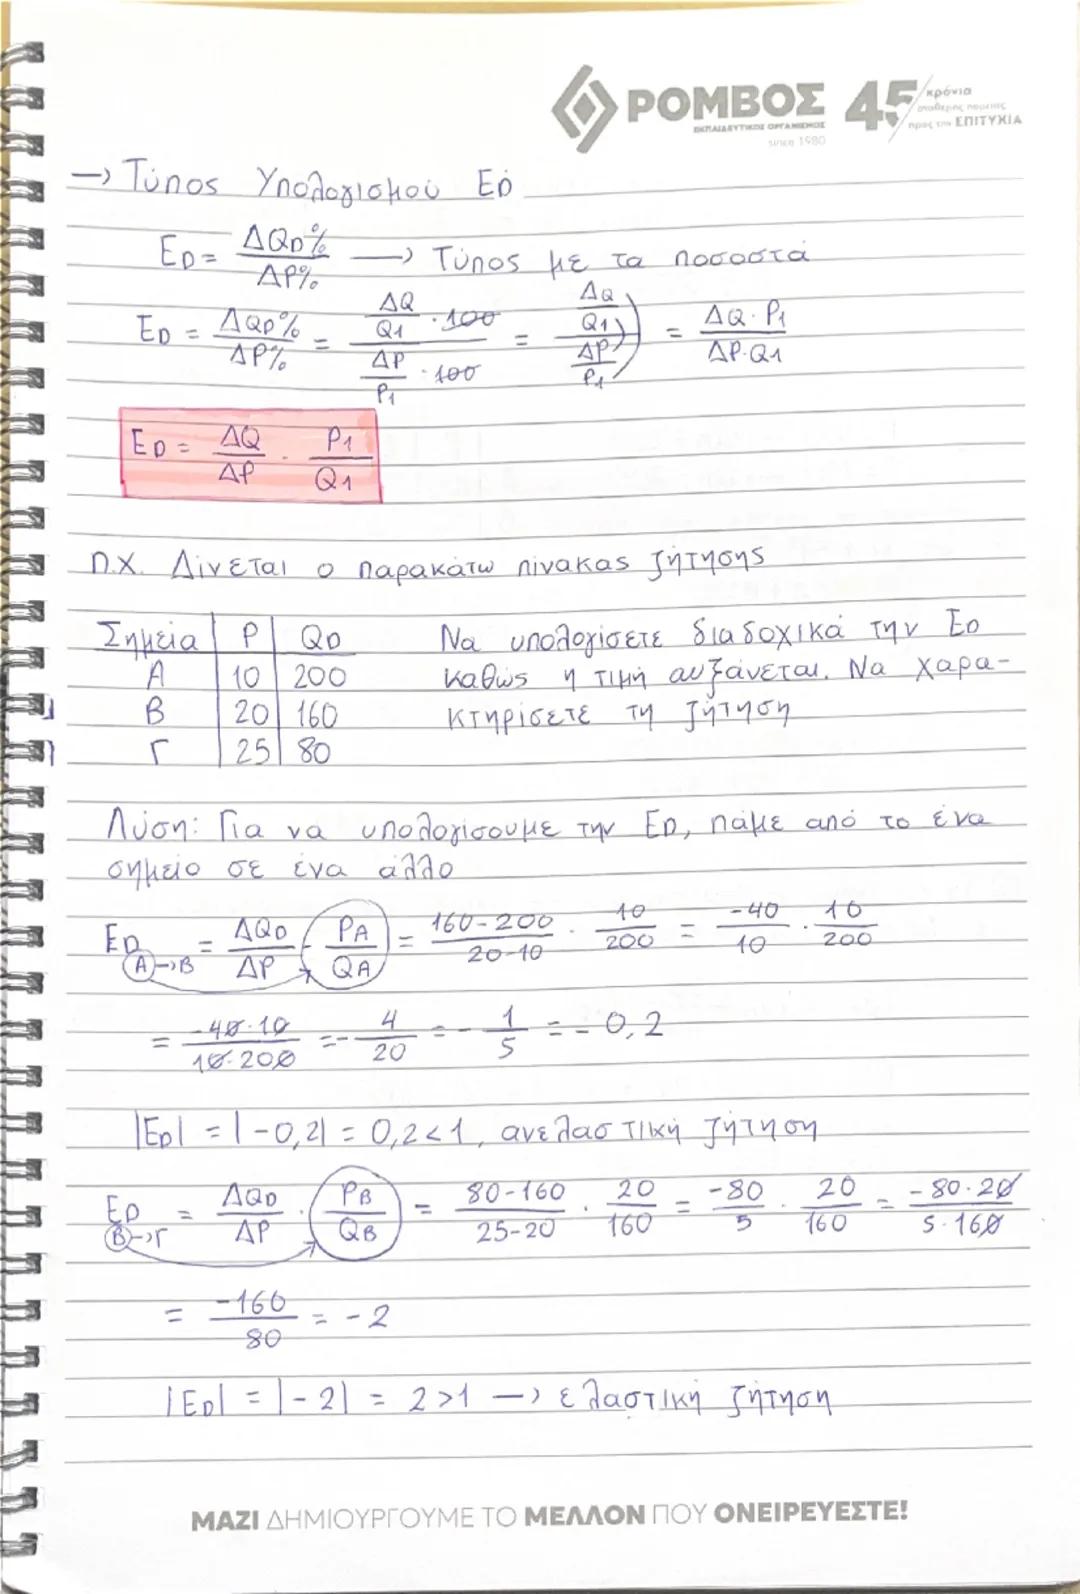 ΡΟΜΒΟΣ 45 χρόνια
σταθερής πορείας
ΕΚΠΑΙΔΕΥΤΙΚΟΣ ΟΡΓΑΝΙΣΜΟΣ προς την ΕΠΙΤΥΧΙΑ
since 1980
→ Τύπος Υπολογισμού ED
ED = ΔQD% / ΔP% → Τύπος με τα ποσοστά
ED = ΔQD% / ΔP% = (ΔQ/Q1 · 100) / (ΔP/P1 · 100) = (ΔQ/Q1) / (ΔP/P1) = ΔQ·P1 / ΔP·Q1
ED = ΔQ/ΔP · P1/Q1
Π.Χ. Δίνεται ο παρακάτω πίνακας ζήτησης
Σημεία P QD Να υπολογίσετε διαδοχικά την ED
Α 10 200 καθώς η τιμή αυξάνεται. Να χαρα-
Β 20 160 κτηρίσετε τη ζήτηση
Γ 25 80
Λύση: Για να υπολογίσουμε την ED, πάμε από το ένα
σημείο σε ένα άλλο
ED A→B = ΔQD/ΔP · PA/QA = 160-200/20-10 · 10/200 = -40/10 · 10/200
= -40·10/10·200 = -4/20 = -1/5 = -0,2
|ED| = |-0,2| = 0,2<1, ανελαστική ζήτηση
ED B→Γ = ΔQD/ΔP · PB/QB = 80-160/25-20 · 20/160 = -80/5 · 20/160 = -80·20/5·160
= -160/80 = -2
|ED| = |-2| = 2>1 → ελαστική ζήτηση
ΜΑΖΙ ΔΗΜΙΟΥΡΓΟΥΜΕ ΤΟ ΜΕΛΛΟΝ ΠΟΥ ΟΝΕΙΡΕΥΕΣΤΕ!